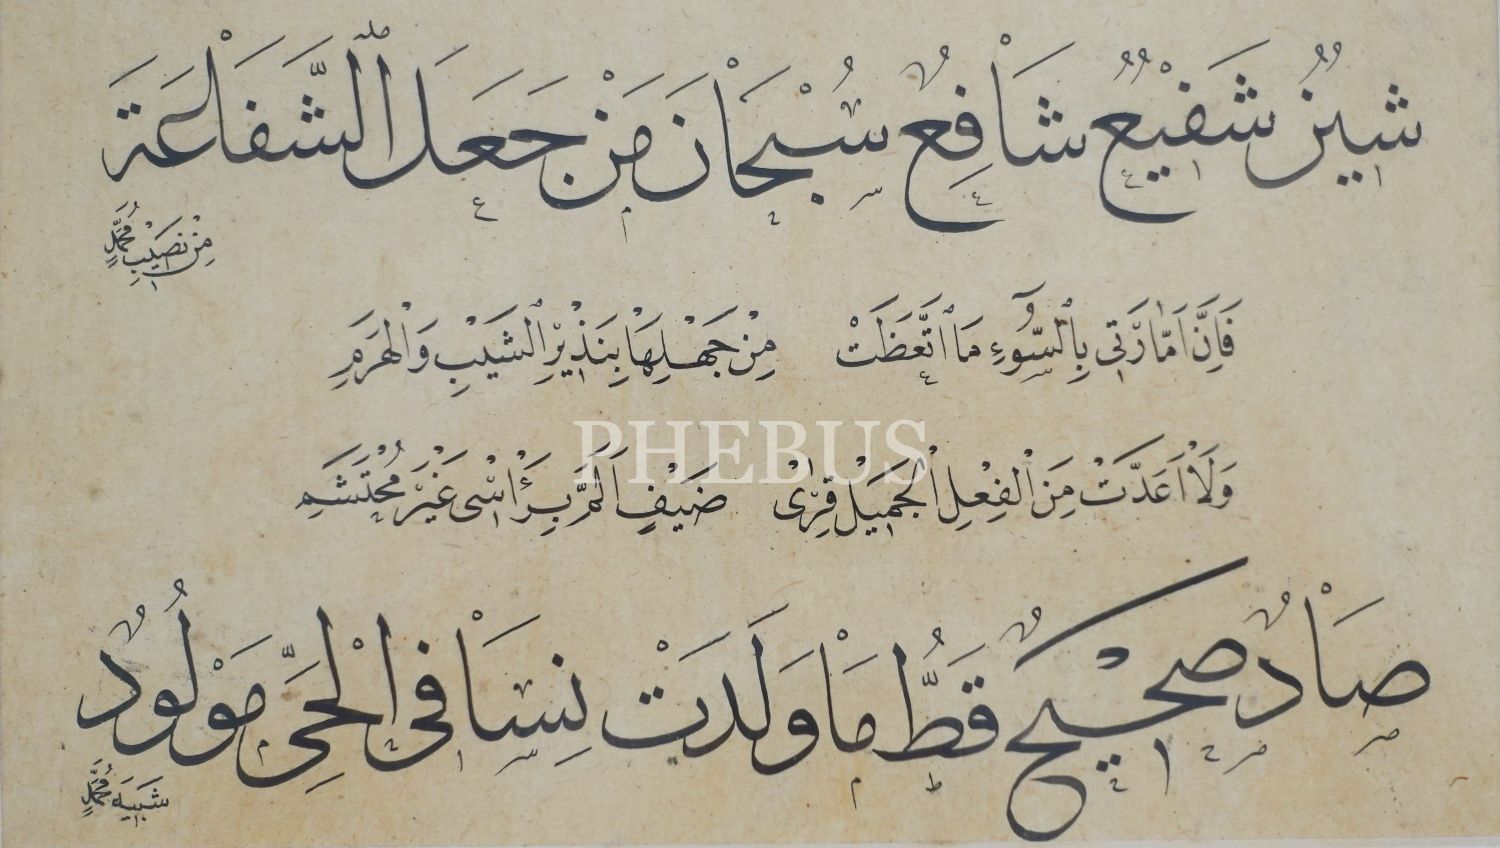 شِينٌ شَفِيْعٌ شَافِعٌ سُبْحَانَ مَنْ جَعَلَ الشَّفَاعَةَ
مِنْ نَصِيْبِ مُحَمَّدٍ
فَاِنَّ اَمَّارَتِي بِالسُّوۤءِ مَا اتَّعَظَتْ مِنْ جَهْلِهَا بِنَذِيْرِ الشَّيْبِ وَالْهَرَمِ
PHEBUS
وَلَا اَعَدَّتْ مِنَ الْفِعْلِ الْجَمِيْلِ قِرٰى ضَيْفٍ اَلَمَّ بِرَأْسِى غَيْرَ مُحْتَشَمِ
صَادٌ صَحِيْحٌ قَطُّ مَا وَلَدَتْ نِسَا فِى الْحَىِّ مَوْلُودٌ
شَبِيَه مُحَمَّدٍ